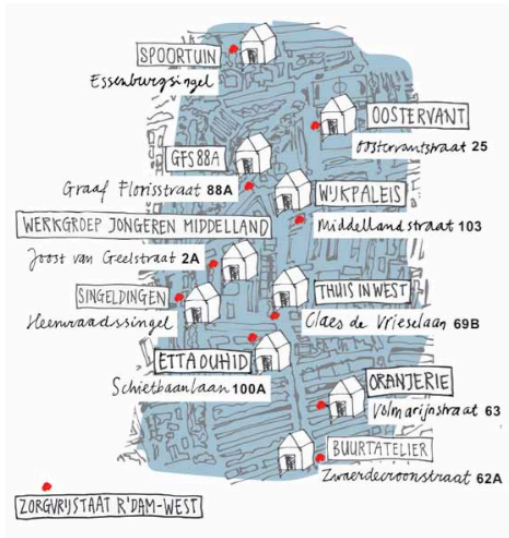 SPOORTUIN
Essenburgsingel
OOSTERVANT
Oostervantstraat 25
GFS88A
Graaf Florisstraat 88A
WIJKPALEIS
Middellandstraat 103
WERKGROEP JONGEREN MIDDELLAND
Joost van Geelstraat 2A
SINGELDINGEN
Heemraadssingel
THUIS IN WEST
Claes de Vrieselaan 69B
ETTAOUHID
Schietbaanlaan 100A
ORANJERIE
Volmarijnstraat 63
BUURTATELIER
Zwaerdecroonstraat 62A
ZORGVRIJSTAAT R'DAM-WEST